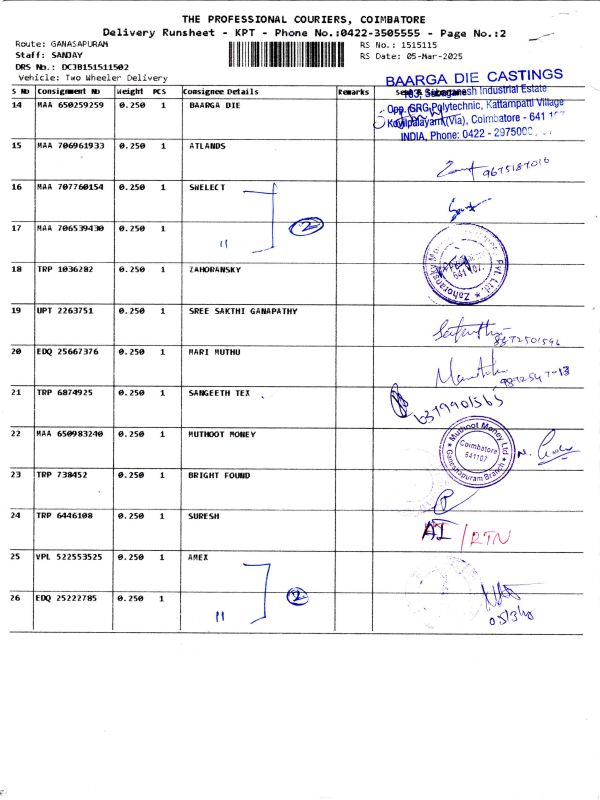 THE PROFESSIONAL COURIERS, COIMBATORE
Delivery Runsheet - KPT - Phone No.:0422-3505555 - Page No.:2
Route: GANASAPURAM RS No.: 1515115
Staff: SANJAY RS Date: 05-Mar-2025
DRS No.: DCJB151511502
Vehicle: Two Wheeler Delivery
BAARGA DIE CASTINGS
S No Consignment No Weight PCS Consignee Details Remarks
Industrial Estate
14 MAA 650259259 0.250 1 BAARGA DIE
Opp. GRG Polytechnic, Kattampatti Village
Kovilpalayam (Via), Coimbatore - 641 107
INDIA, Phone: 0422 - 2975000
15 MAA 706961933 0.250 1 ATLANDS
9675187016
16 MAA 707760154 0.250 1 SWELECT
17 MAA 706539430 0.250 1 " 2
18 TRP 1036282 0.250 1 ZAHORANSKY
Zahoransky Pvt. Ltd. 641 107.
19 UPT 2263751 0.250 1 SREE SAKTHI GANAPATHY
20 EDQ 25667376 0.250 1 MARI MUTHU
21 TRP 6874925 0.250 1 SANGEETH TEX
6379901565
22 MAA 650983240 0.250 1 MUTHOOT MONEY
Muthoot Money Ltd
Coimbatore
641107
Ganeshpuram Branch
23 TRP 738452 0.250 1 BRIGHT FOUND
24 TRP 6446108 0.250 1 SURESH
AI / RTN
25 VPL 522553525 0.250 1 AMEX
26 EDQ 25222785 0.250 1 " 2